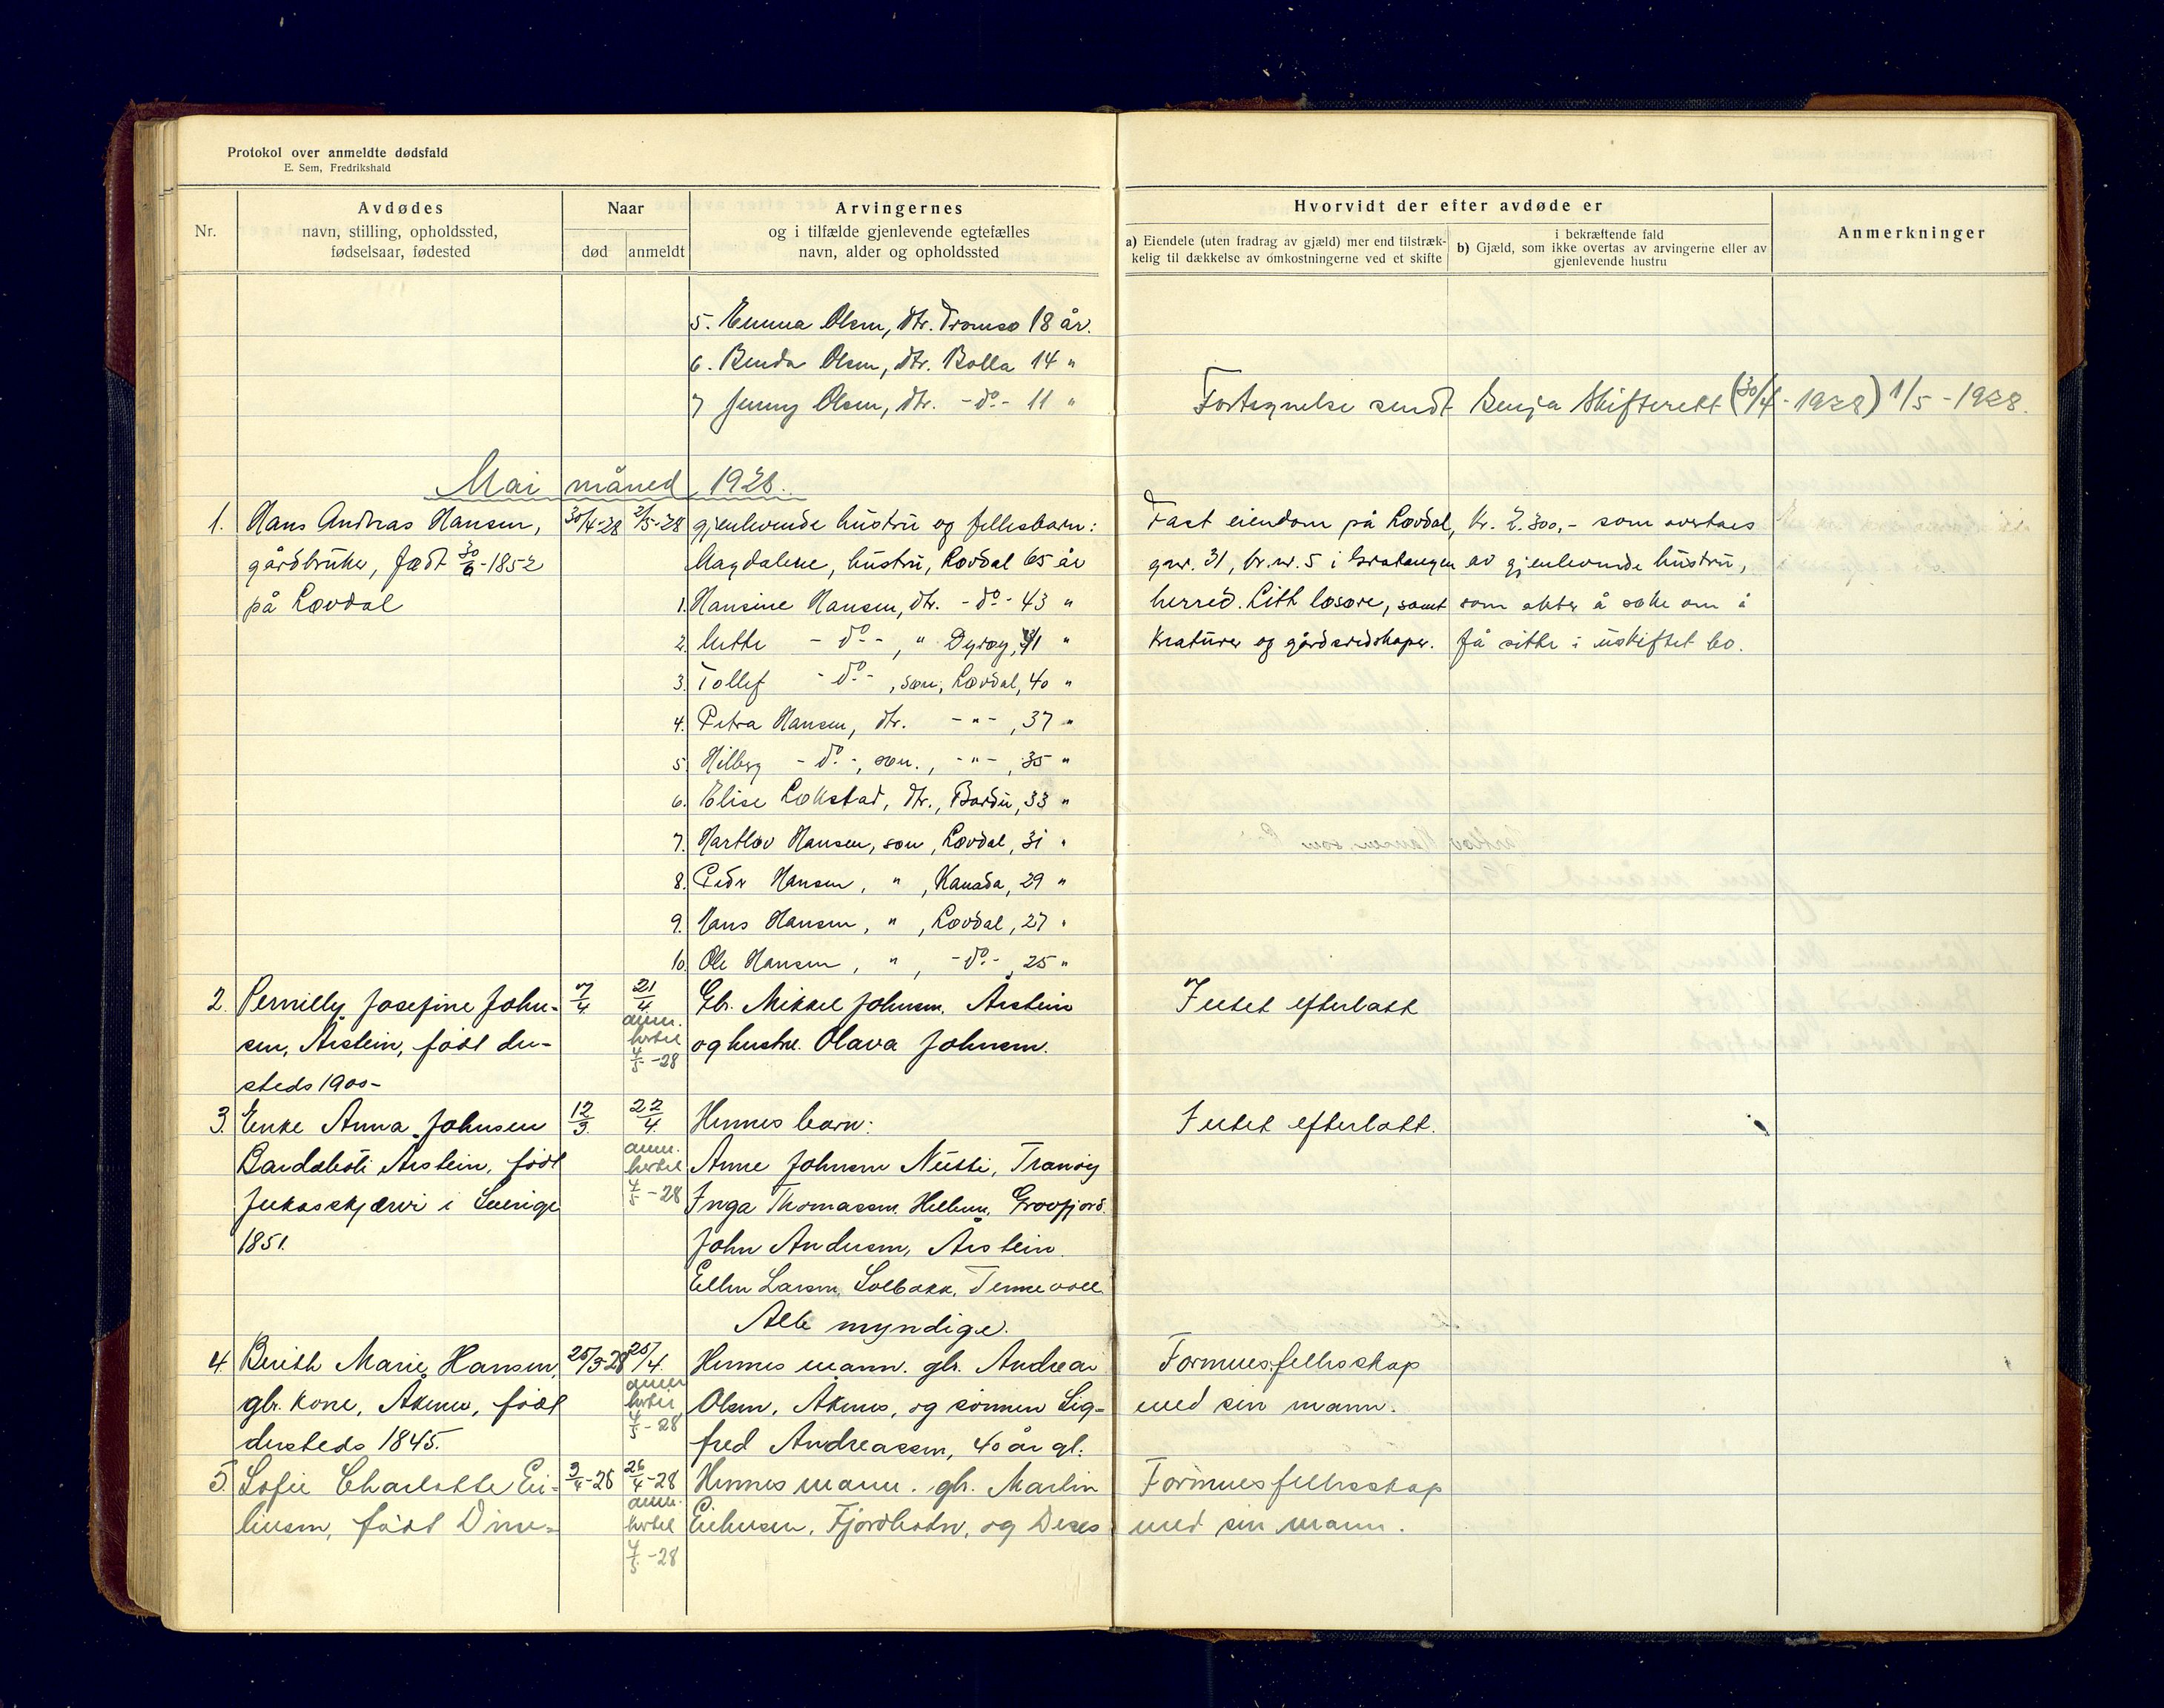 Protokol over anmeldte dødsfald
E. Sem, Fredrikshald
Nr.
Avdødes
navn, stilling, opholdssted,
fødselsaar, fødested
Naar
død
anmeldt
Arvingernes
og i tilfælde gjenlevende egtefælles
navn, alder og opholdssted
Hvorvidt der efter avdøde er
a) Eiendele (uten fradrag av gjæld) mer end tilstræk-
kelig til dækkelse av omkostningerne ved et skifte
i bekræftende fald
b) Gjæld, som ikke overtas av arvingerne eller av
gjenlevende hustru
Anmerkninger
5. Emma Olsen, dtr. Tromsø 18 år.
6. Olsen, dtr. Bolla 14 "
7 Jenny Olsen, dtr. -do.- 11 "
Fortegnelse sendt Senja Skifterett (30/4 - 1928) 1/5 - 1928.
Mai måned 1928.
1. Hans Andreas Hansen, 30/4-28 2/5-28 gjenlevende hustru og fellesbarn:
gårdbruker, født 30/6-1852 Magdalene, hustru, Løvdal 65 år
på Løvdal 1. Hansine Hansen, dtr. -do- 43 "
2. -do-, " Dyrøy, 41 "
3. Tollef -do-, søn, Løvdal, 40 "
4. Petra Hansen, dtr. -"-, 37 "
5. Hilberg -do.-, søn., -"-, 35 "
6. Elise Løkstad, dtr., Bardu, 33 "
7. Hartløv Hansen, søn, Løvdal, 31 "
8. Peder Hansen, ", Kanada, 29 "
9. Hans Hansen, ", Løvdal, 27 "
10. Ole Hansen, ", -do-, 25 "
Fast eiendom på Løvdal, kr. 2.300,- som overtaes
gnr. 31, br.nr. 5 i Gratangen av gjenlevende hustru,
herred. Litt løsøre, samt som akter å søke om å
kreaturer og gårdsredskaper. få sitte i uskiftet bo.
2. Pernilly Josefine John- 7/4 21/4 Gb. Mikkel Johnsen, Årstein
sen, Årstein, født der- anm. hertil 4/5-28 og hustru Olava Johnsen.
steds 1900-
Intet efterlatt
3. Enke Anna Johnsen 12/3. 22/4. Hennes barn:
Årstein, født anm. hertil 4/5-28 Anne Johnsen Nutti, Tranøy
Jukaskjærvi i Sverige Inga Thomassen, Hellemn, Grovfjord.
1851. John Andersen, Årstein.
Ellen Larsen, Solbakk, Tennevoll.
Alle myndige.
Intet efterlatt.
4. Berith Marie Hansen, 25/3-28 25/4. Hennes mann. gb. Andreas
gb. kone, Åknes, født anm hertil 4/5-28 Olsen, Åknes, og sønnen Sig-
dersteds 1845. fred Andreassen, 40 år gl.
Formuesfellesskap
med sin mann.
5. Sofie Charlotte Ei- 3/4-28 26/4-28 Hennes mann. gb. Martin
linsen, født anm. hertil 4/5-28 Eilinsen, Fjordbotn, og Deres
Formuesfellesskap
med sin mann.